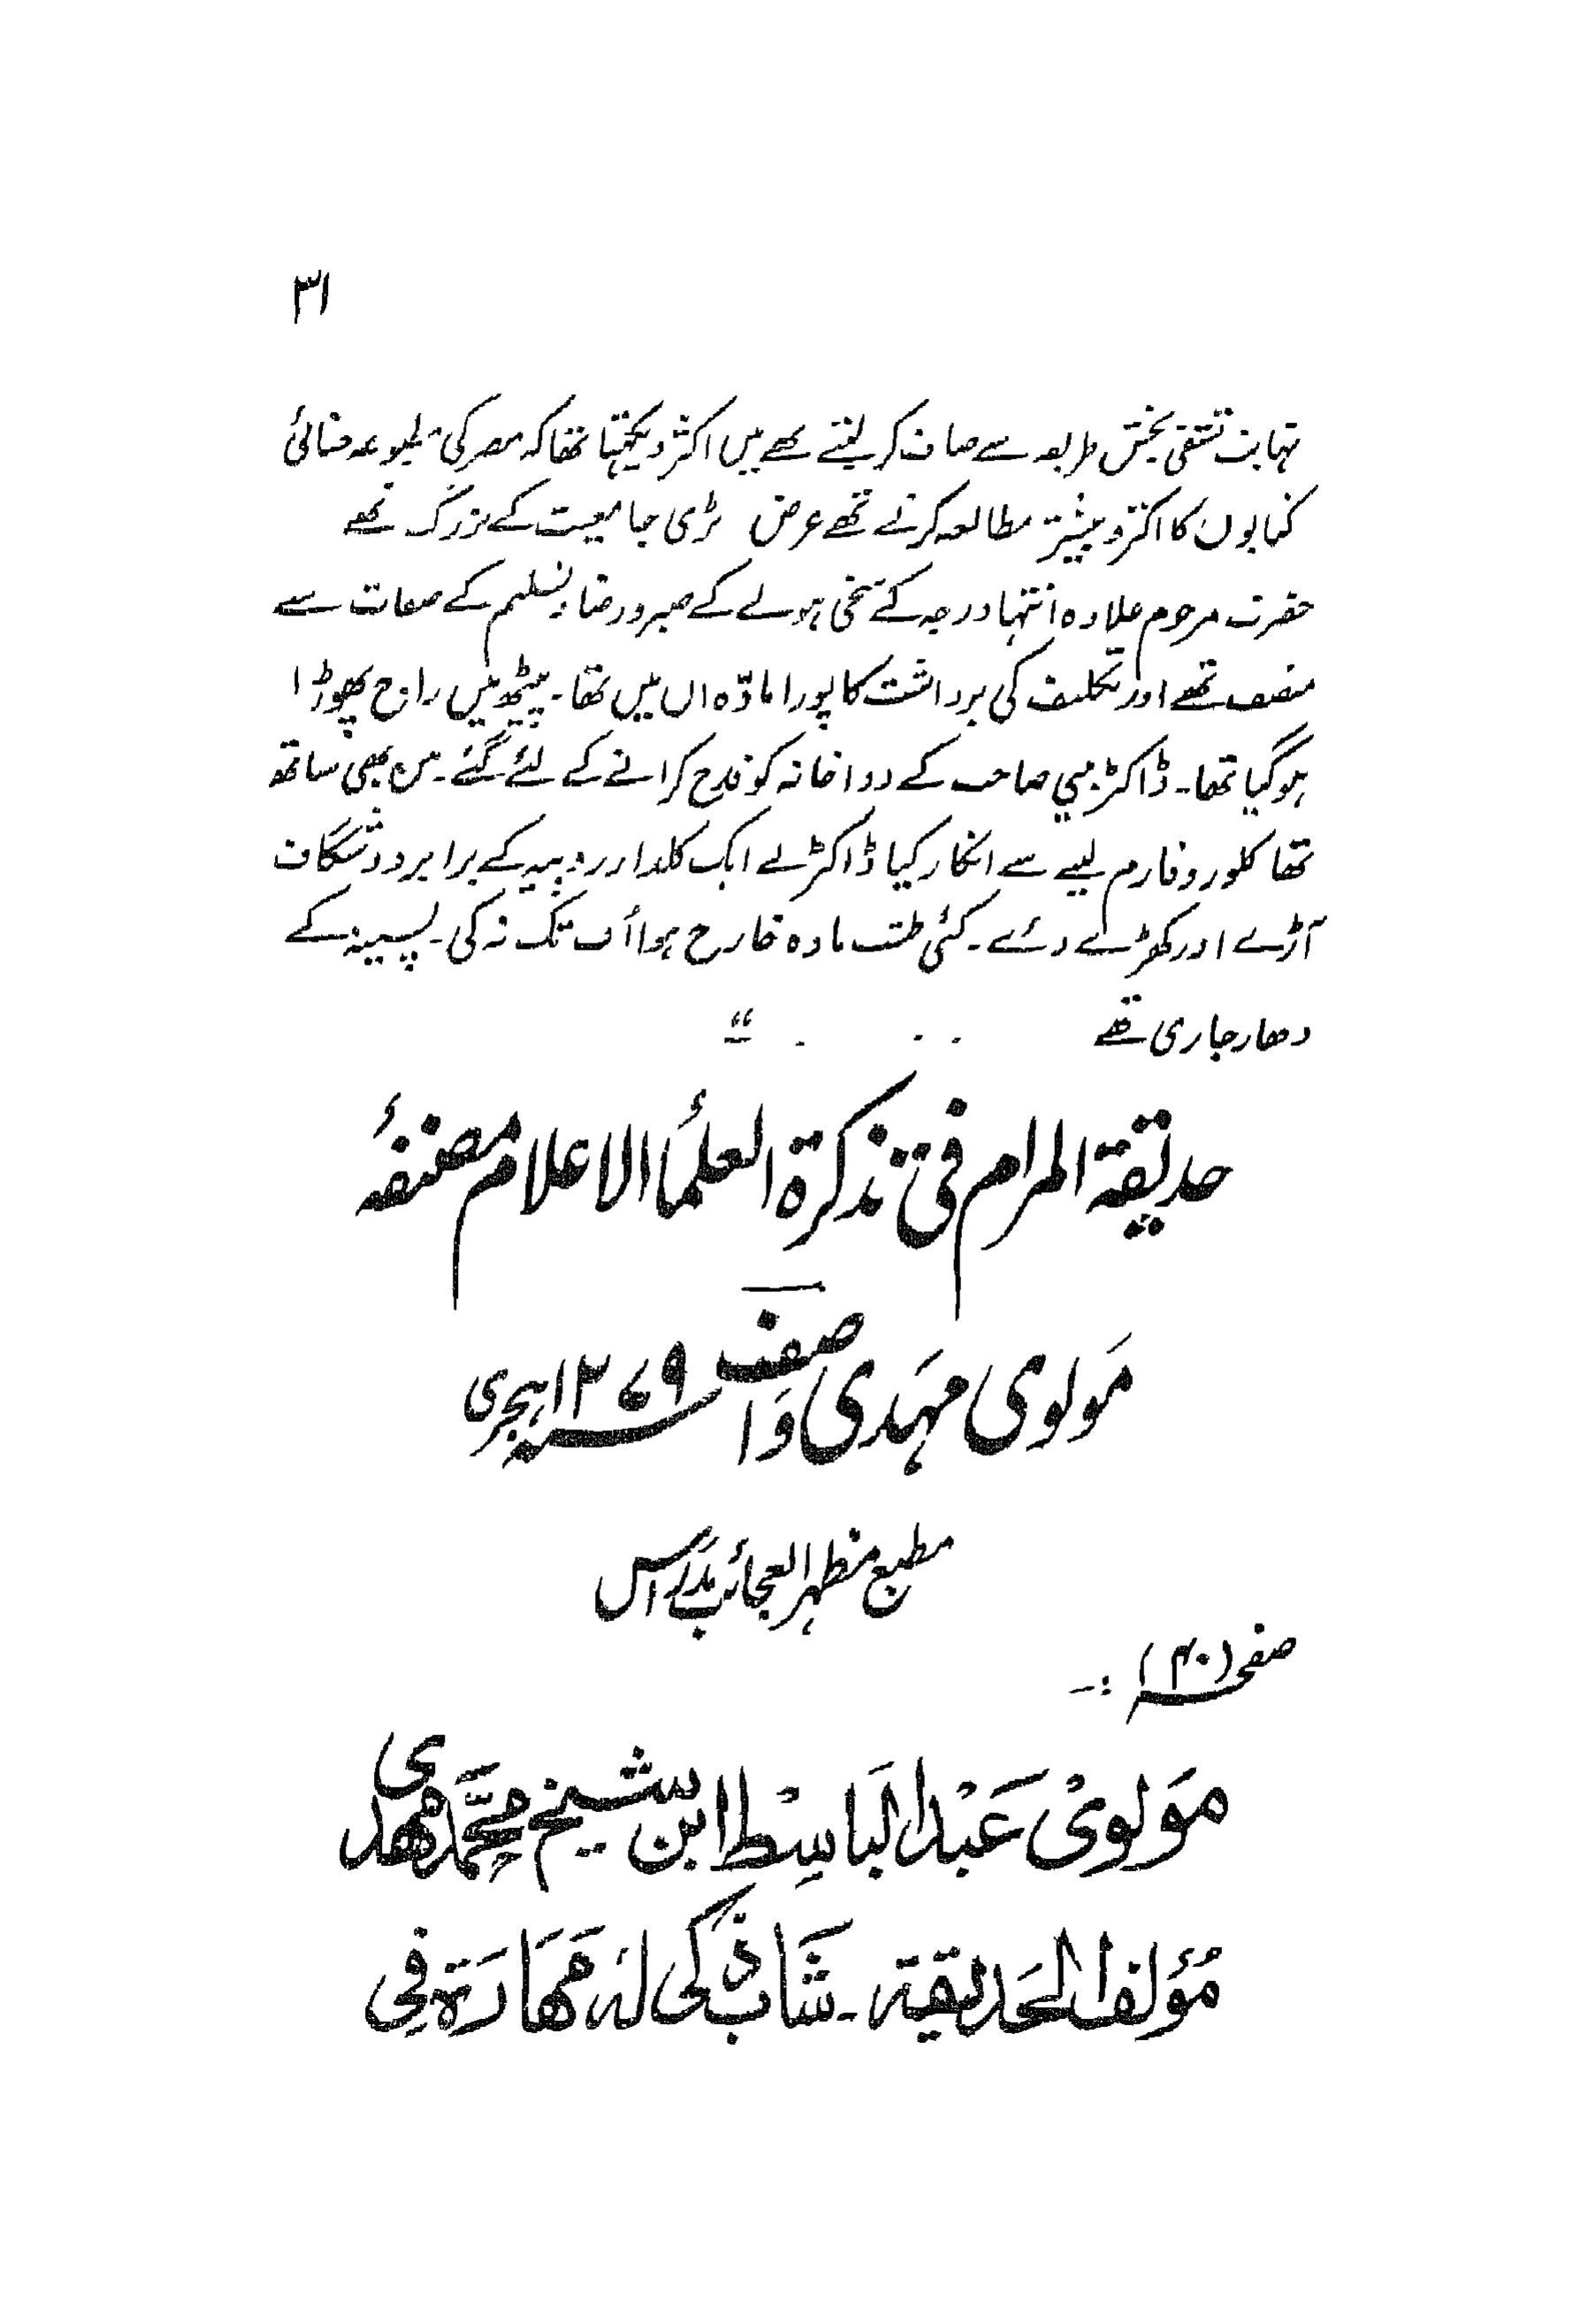 ۳۱
نہایت تشفی بخش طریقہ سے صاف کر لیتے تھے میں اکثر دیکھتا تھا کہ مصر کی مطبوعہ
کتابوں کا اکثر و بیشتر مطالعہ کرتے تھے غرض بڑی جامعیت کے بزرگ تھے
حضرت مرحوم علاوہ انتہا درجہ کے سخی ہونے کے صبر و رضا و تسلیم کے صفات سے
متصف تھے اور تکلیف کی برداشت کا پورا مادّہ ان میں تھا۔ پیٹھ میں راج پھوڑا
ہو گیا تھا۔ ڈاکٹر صاحب کے دواخانہ کو قدح کرانے کے لئے گئے۔ میں بھی ساتھ
تھا کلوروفارم لینے سے انکار کیا ڈاکٹر نے ایک کلدار روپیہ کے برابر دو شگاف
آڑے اور کھڑے دئے۔ کئی طشت مادہ خارج ہوا اُف تک نہ کی۔ پسینہ کے
دھار جاری تھے “
حدیقۃ المرام فی تذکرۃ العلمأ الاعلام مصنفۂ
مَولوی مہَدی وَاصف ۱۲۷۹ ہجری
مطبع مظہر العجائب مدراس
صفحہ (۴۰) :-
مَولوِیْ عَبْدُ البَاسِطْ ابن شیخ محَمَّد مھدی
مُؤلف الحَدیقیۃ ۔ شَابٌ ذکی لہٗ مَھَارَۃ فِی